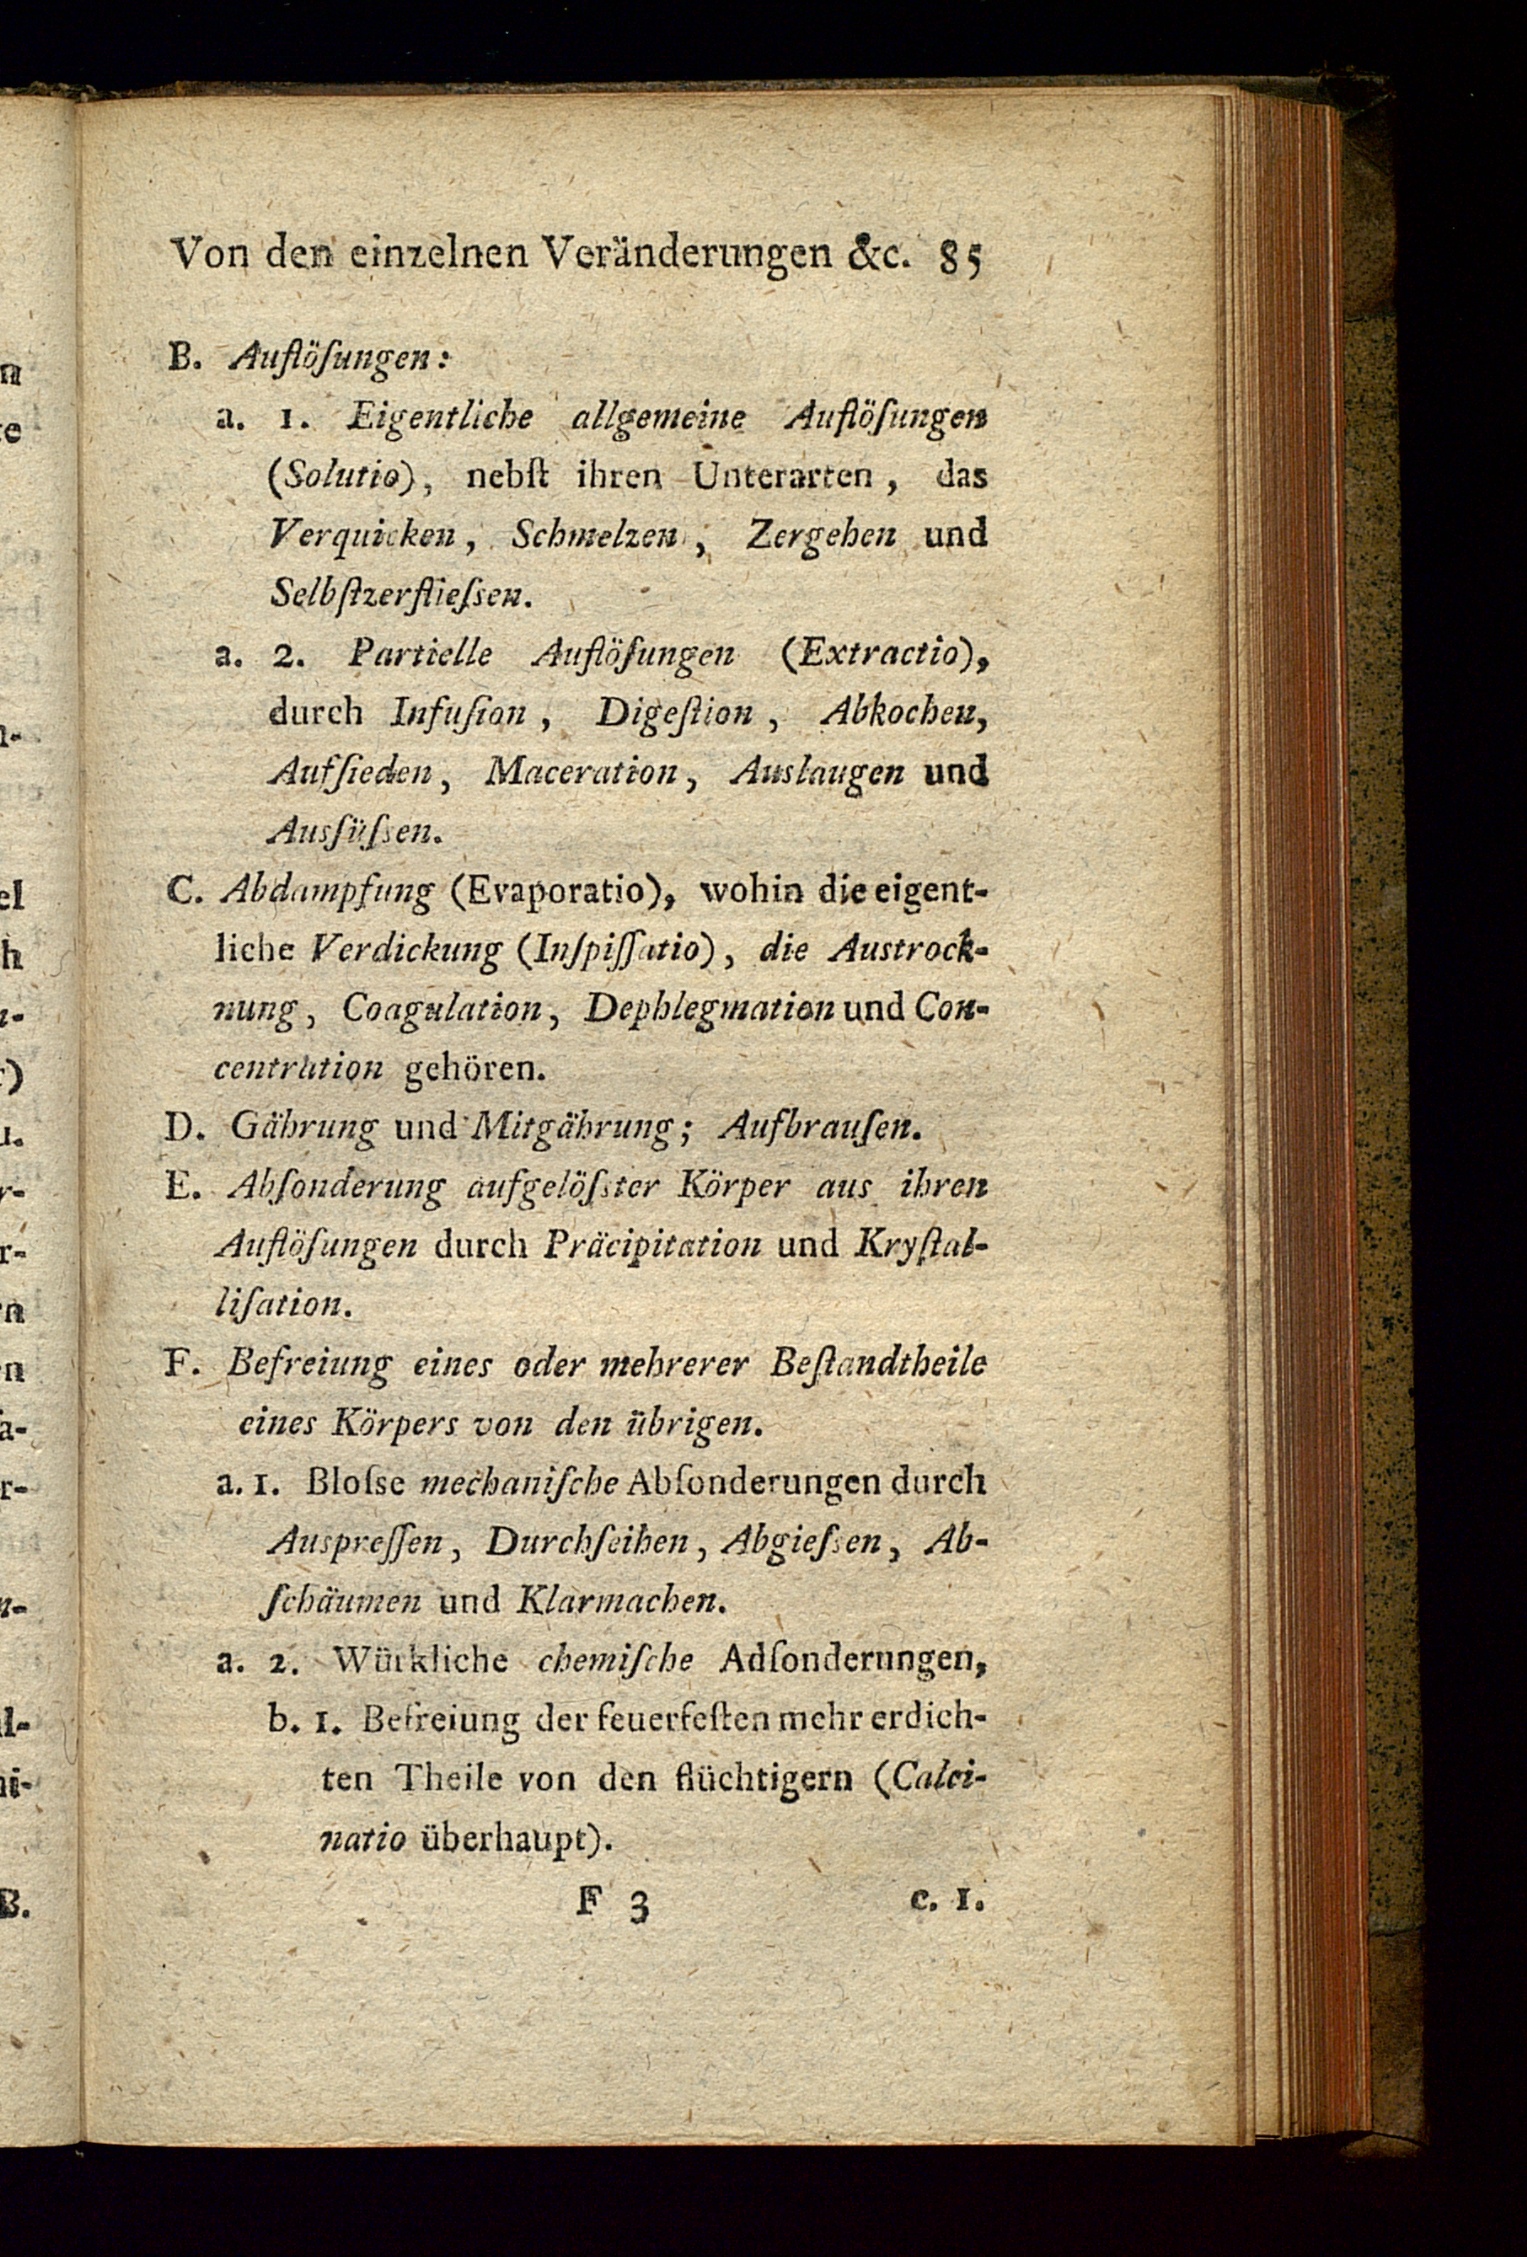 Von den einzelnen Veränderungen &c. 85
B. Auflöſungen:
a. 1. Eigentliche allgemeine Auflöſungen
(Solutio), nebſt ihren Unterarten, das
Verquicken, Schmelzen, Zergehen und
Selbſtzerflieſsen.
a. 2. Partielle Auflöſungen (Extractio),
durch Infuſion, Digeſtion, Abkochen,
Aufſieden, Maceration, Auslaugen und
Ausſüſsen.
C. Abdampfung (Evaporatio), wohin die eigent-
liche Verdickung (Inſpiſſatio), die Austrock-
nung, Coagulation, Dephlegmation und Con-
centration gehören.
D. Gährung und Mitgährung; Aufbrauſen.
E. Abſonderung aufgelöſster Körper aus ihren
Auflöſungen durch Präcipitation und Kryſtal-
liſation.
F. Befreiung eines oder mehrerer Beſtandtheile
eines Körpers von den übrigen.
a. 1. Bloſse mechaniſche Abſonderungen durch
Auspreſſen, Durchſeihen, Abgieſsen, Ab-
ſchäumen und Klarmachen.
a. 2. Würkliche chemiſche Adſonderungen,
b. 1. Befreiung der feuerfeſten mehr erdich-
ten Theile von den flüchtigern (Calci-
natio überhaupt).
F 3 c. 1.